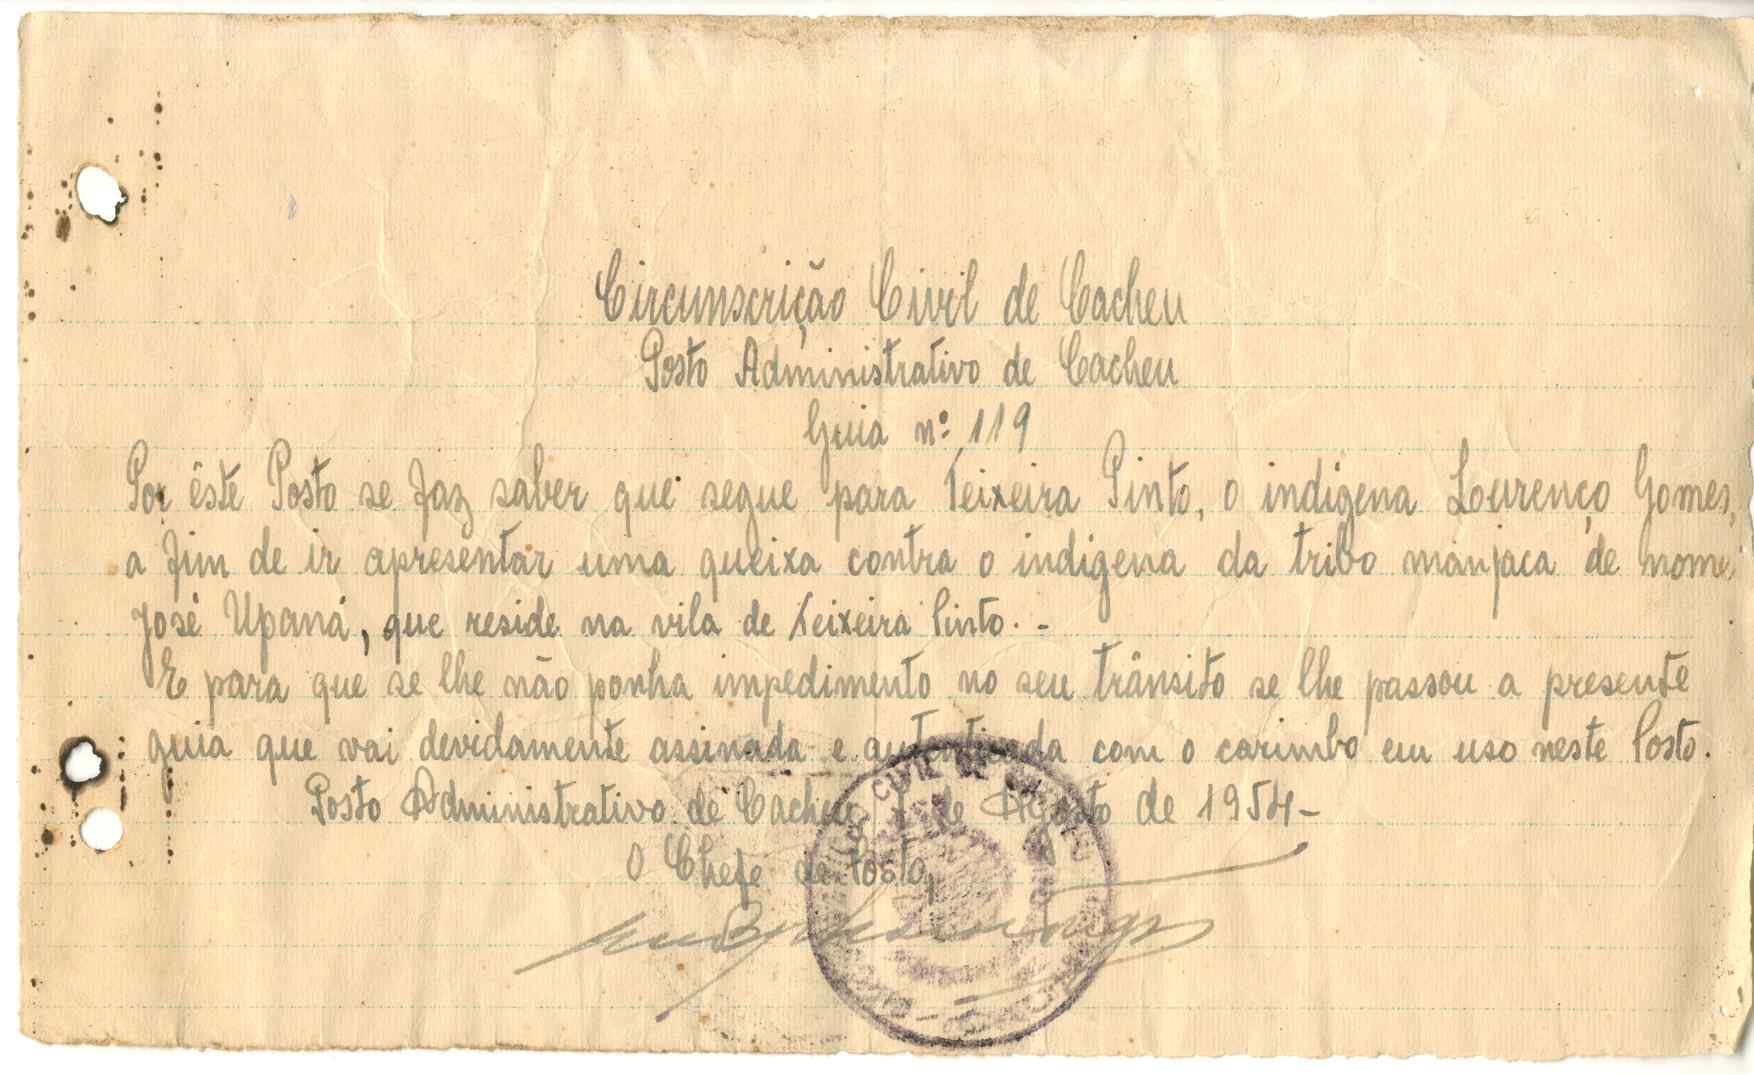 Circunscrição Civil de Cacheu
Posto Administrativo de Cacheu
Guia nº 119
Por êste Posto se faz saber que segue para Teixeira Pinto, o indígena Lourenço Gomes,
a fim de ir apresentar uma queixa contra o indigena da tribo manjaca de nome
José Upaná, que reside na vila de Teixeira Pinto. -
E para que se lhe não ponha impedimento no seu trânsito se lhe passou a presente
guia que vai devidamente assinada e autenticada com o carimbo em uso neste Posto.
Posto Administrativo de Cacheu, de Agosto de 1954-
O Chefe de Posto,
CIVIL DE